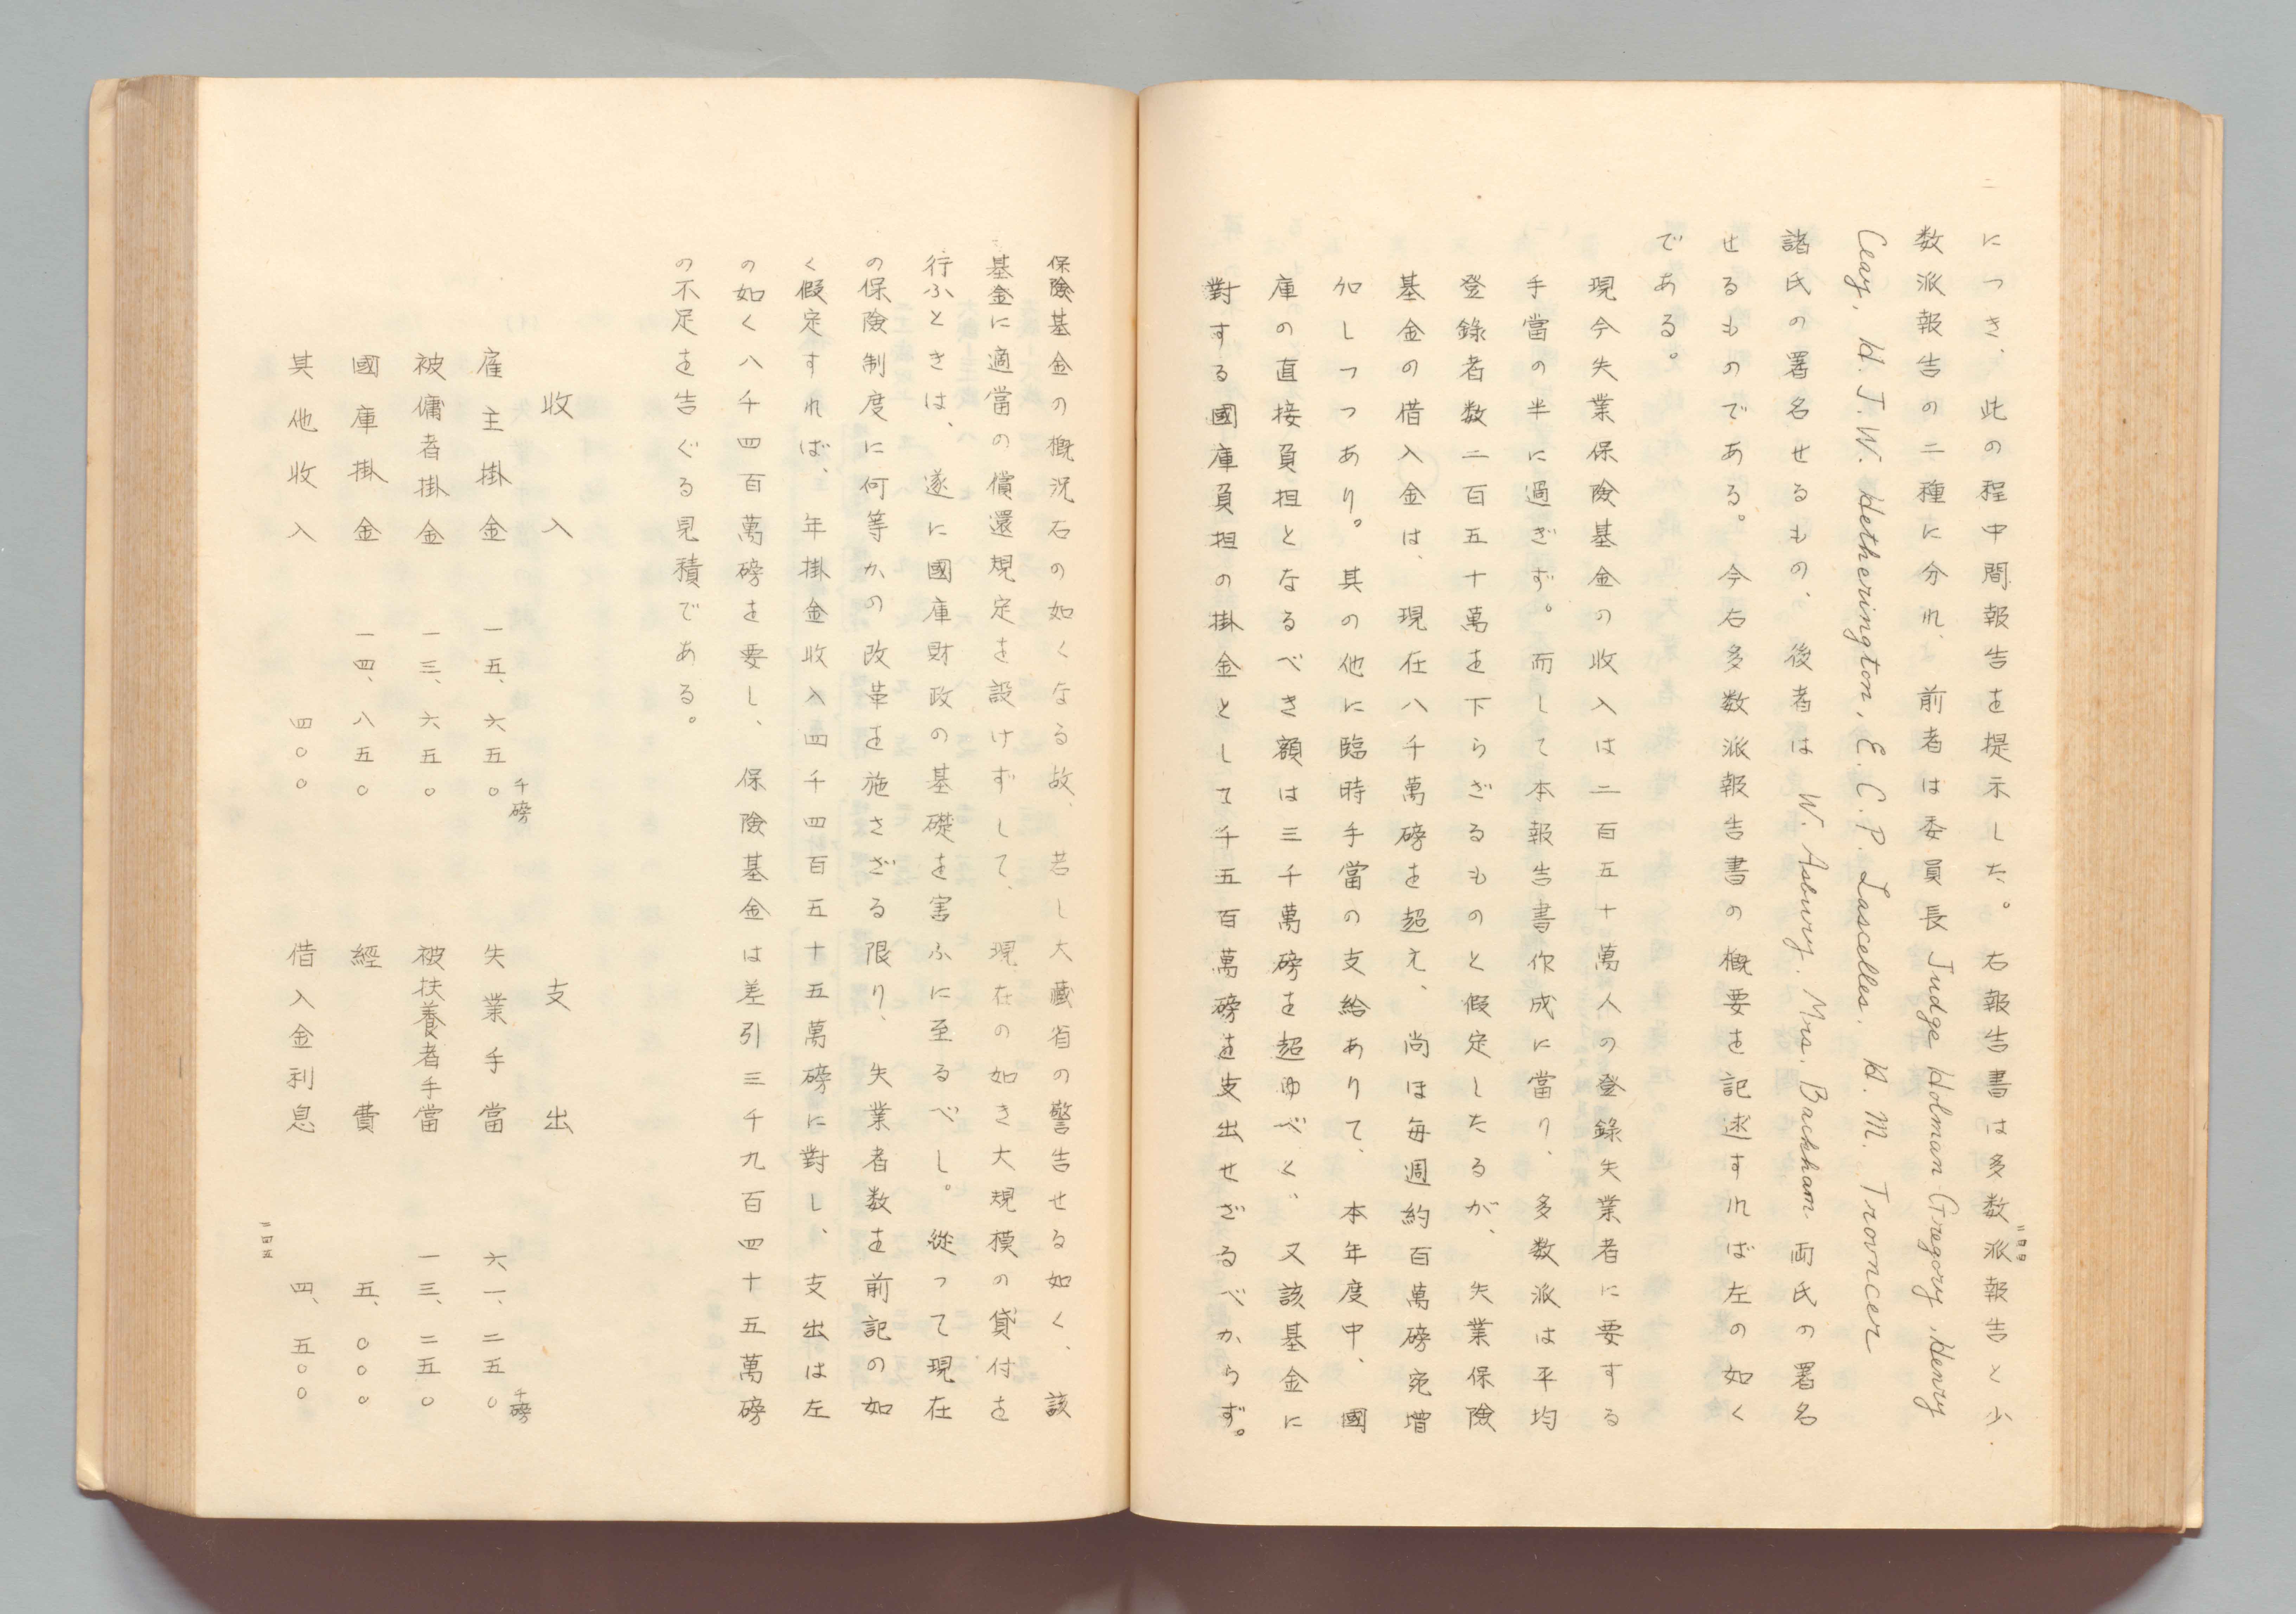 につき、此の程中間報告を提示した。右報告書は多数派報告と少
数派報告の二種に分れ、前者は委員長 Judge Holman Gregory, Henry
Clay, H. J. W. Hetherington, E. C. P. Lascelles. H. M. Trovncer
諸氏の署名せるもの、後者は W. Asbury. Mrs. Backham 両氏の署名
せるものである。今右多数派報告書の概要を記述すれば左の如く
である。
現今失業保険基金の收入は二百五十萬人の登錄失業者に要する
手當の半に過ぎず。而して本報告書作成に當り、多数派は平均
登錄者数二百五十萬を下らざるものと假定したるが、失業保險
基金の借入金は、現在八千萬磅を超え、尚ほ毎週約百萬磅宛增
加しつつあり。其の他に臨時手當の支給ありて、本年度中、國
庫の直接負担となるべき額は三千萬磅を超ゆべく、又該基金に
對する國庫負担の掛金として千五百萬磅を支出せざるべからず。
二四四
保險基金の概況右の如くなる故、若し大藏省の警告せる如く、該
基金に適當の償還規定を設けずして、現在の如き大規模の貸付を
行ふときは、遂に國庫財政の基礎を害ふに至るべし。從って現在
の保險制度に何等かの改革を施さざる限り、失業者数を前記の如
く假定すれば、年掛金收入四千四百五十五萬磅に對し、支出は左
の如く八千四百萬磅を要し、保險基金は差引三千九百四十五萬磅
の不足を告ぐる見積である。
收入 支出
千磅 千磅
雇主掛金 一五、六五〇 失業手當 六一、二五〇
被傭者掛金 一三、六五〇 被扶養者手當 一三、二五〇
國庫掛金 一四、八五〇 經費 五、〇〇〇
其他收入 四〇〇 借入金利息 四、五〇〇
二四五